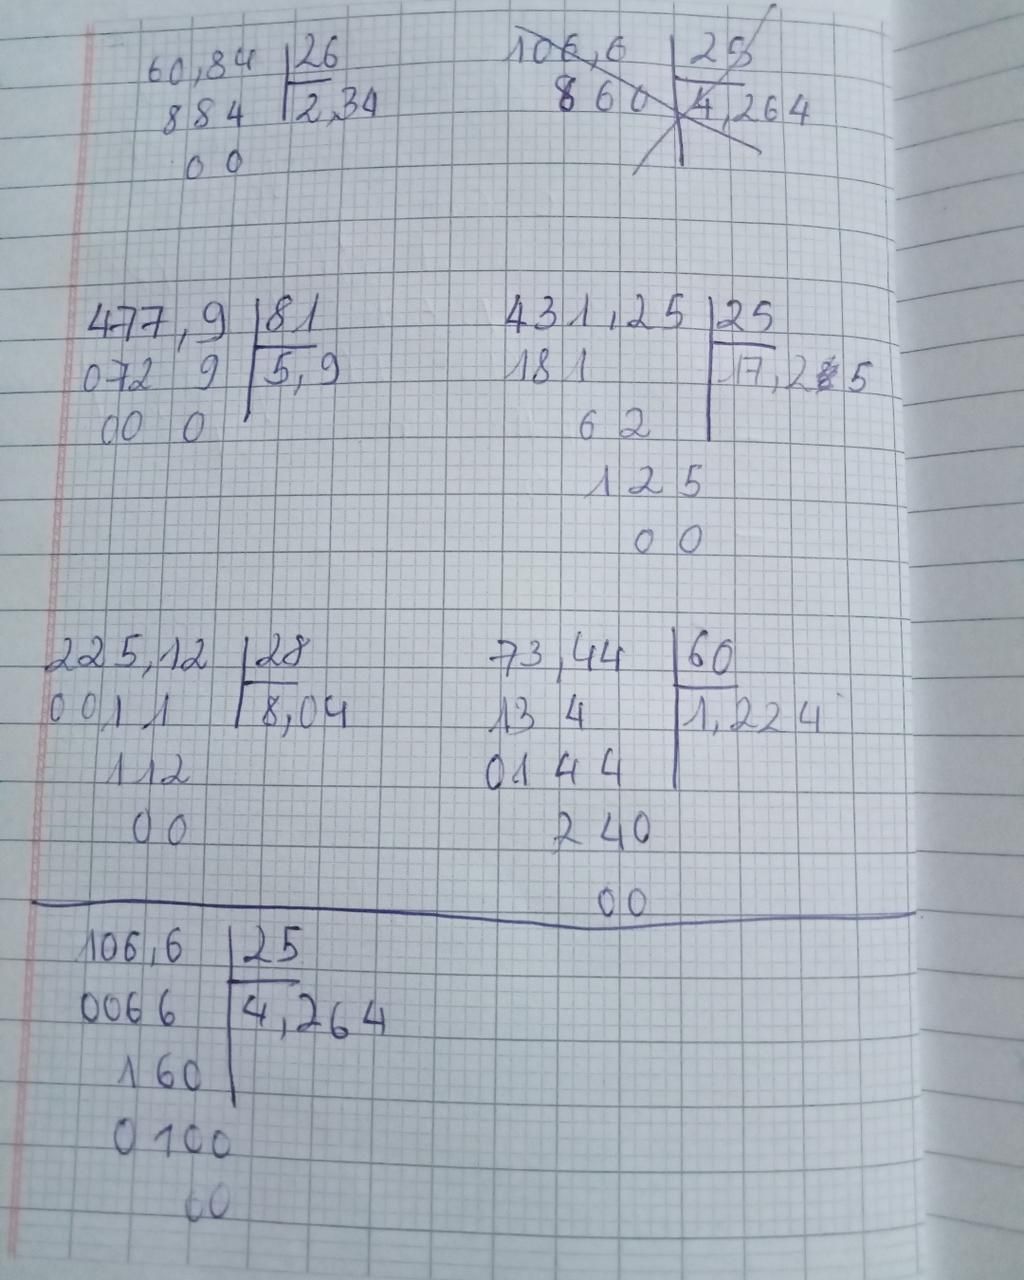 60,84 26
884 2,34
00
106,6 25
860 4,264
477,9 81
072 9 5,9
00 0
431,25 25
181 17,25
62
125
00
225,12 28
0011 8,04
112
00
73,44 60
13 4 1,224
01 44
240
00
106,6 25
0066 4,264
160
0100
00